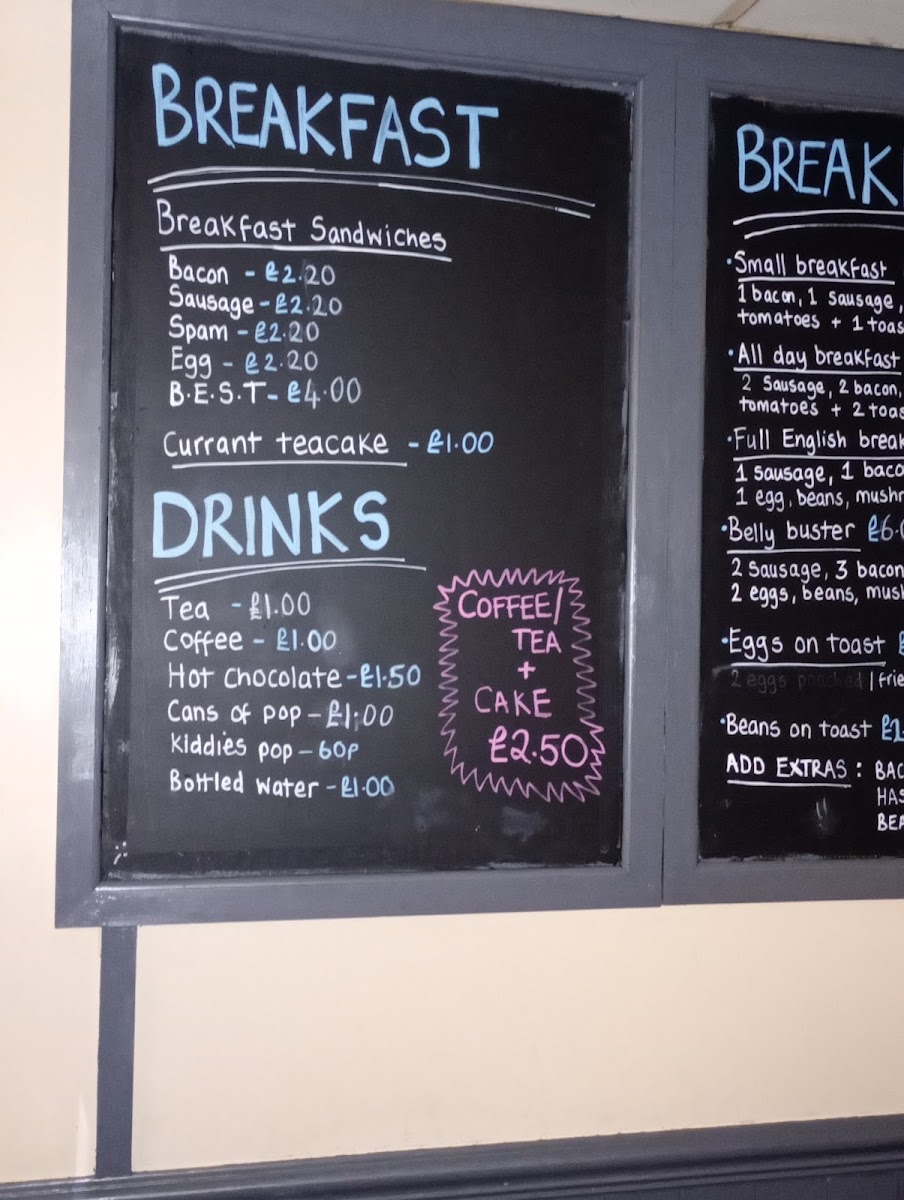 BREAKFAST
Breakfast Sandwiches
Bacon - £2.20
Sausage - £2.20
Spam - £2.20
Egg - £2.20
B.E.S.T - £4.00
Currant teacake - £1.00
DRINKS
Tea - £1.00
Coffee - £1.00
Hot Chocolate - £1.50
Cans of pop - £1.00
Kiddies pop - 60P
Bottled water - £1.00
COFFEE/
TEA
+
CAKE
£2.50
BREAK
• Small breakfast
1 bacon, 1 sausage,
tomatoes + 1 toas
• All day breakfast
2 Sausage, 2 bacon,
tomatoes + 2 toas
• Full English break
1 sausage, 1 baco
1 egg, beans, mushr
• Belly buster £6.
2 Sausage, 3 bacon
2 eggs, beans, mus
• Eggs on toast £
2 eggs poached / frie
• Beans on toast
ADD EXTRAS : BAC
HAS
BEA